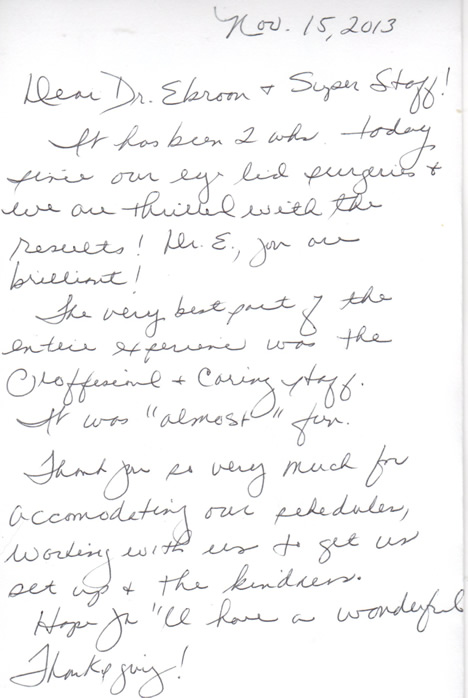 Nov. 15, 2013
Dear Dr. Ebroon + Super Staff!
It has been 2 wks. today
since our eye lid surgeries +
we are thrilled with the
results! Dr. E., you are
brilliant!
The very best part of the
entire experience was the
Proffesional + Caring staff.
It was "almost" fun.
Thank you so very much for
accomodating our schedules,
working with us to get us
set up + the kindness.
Hope you'll have a wonderful
Thanksgiving!